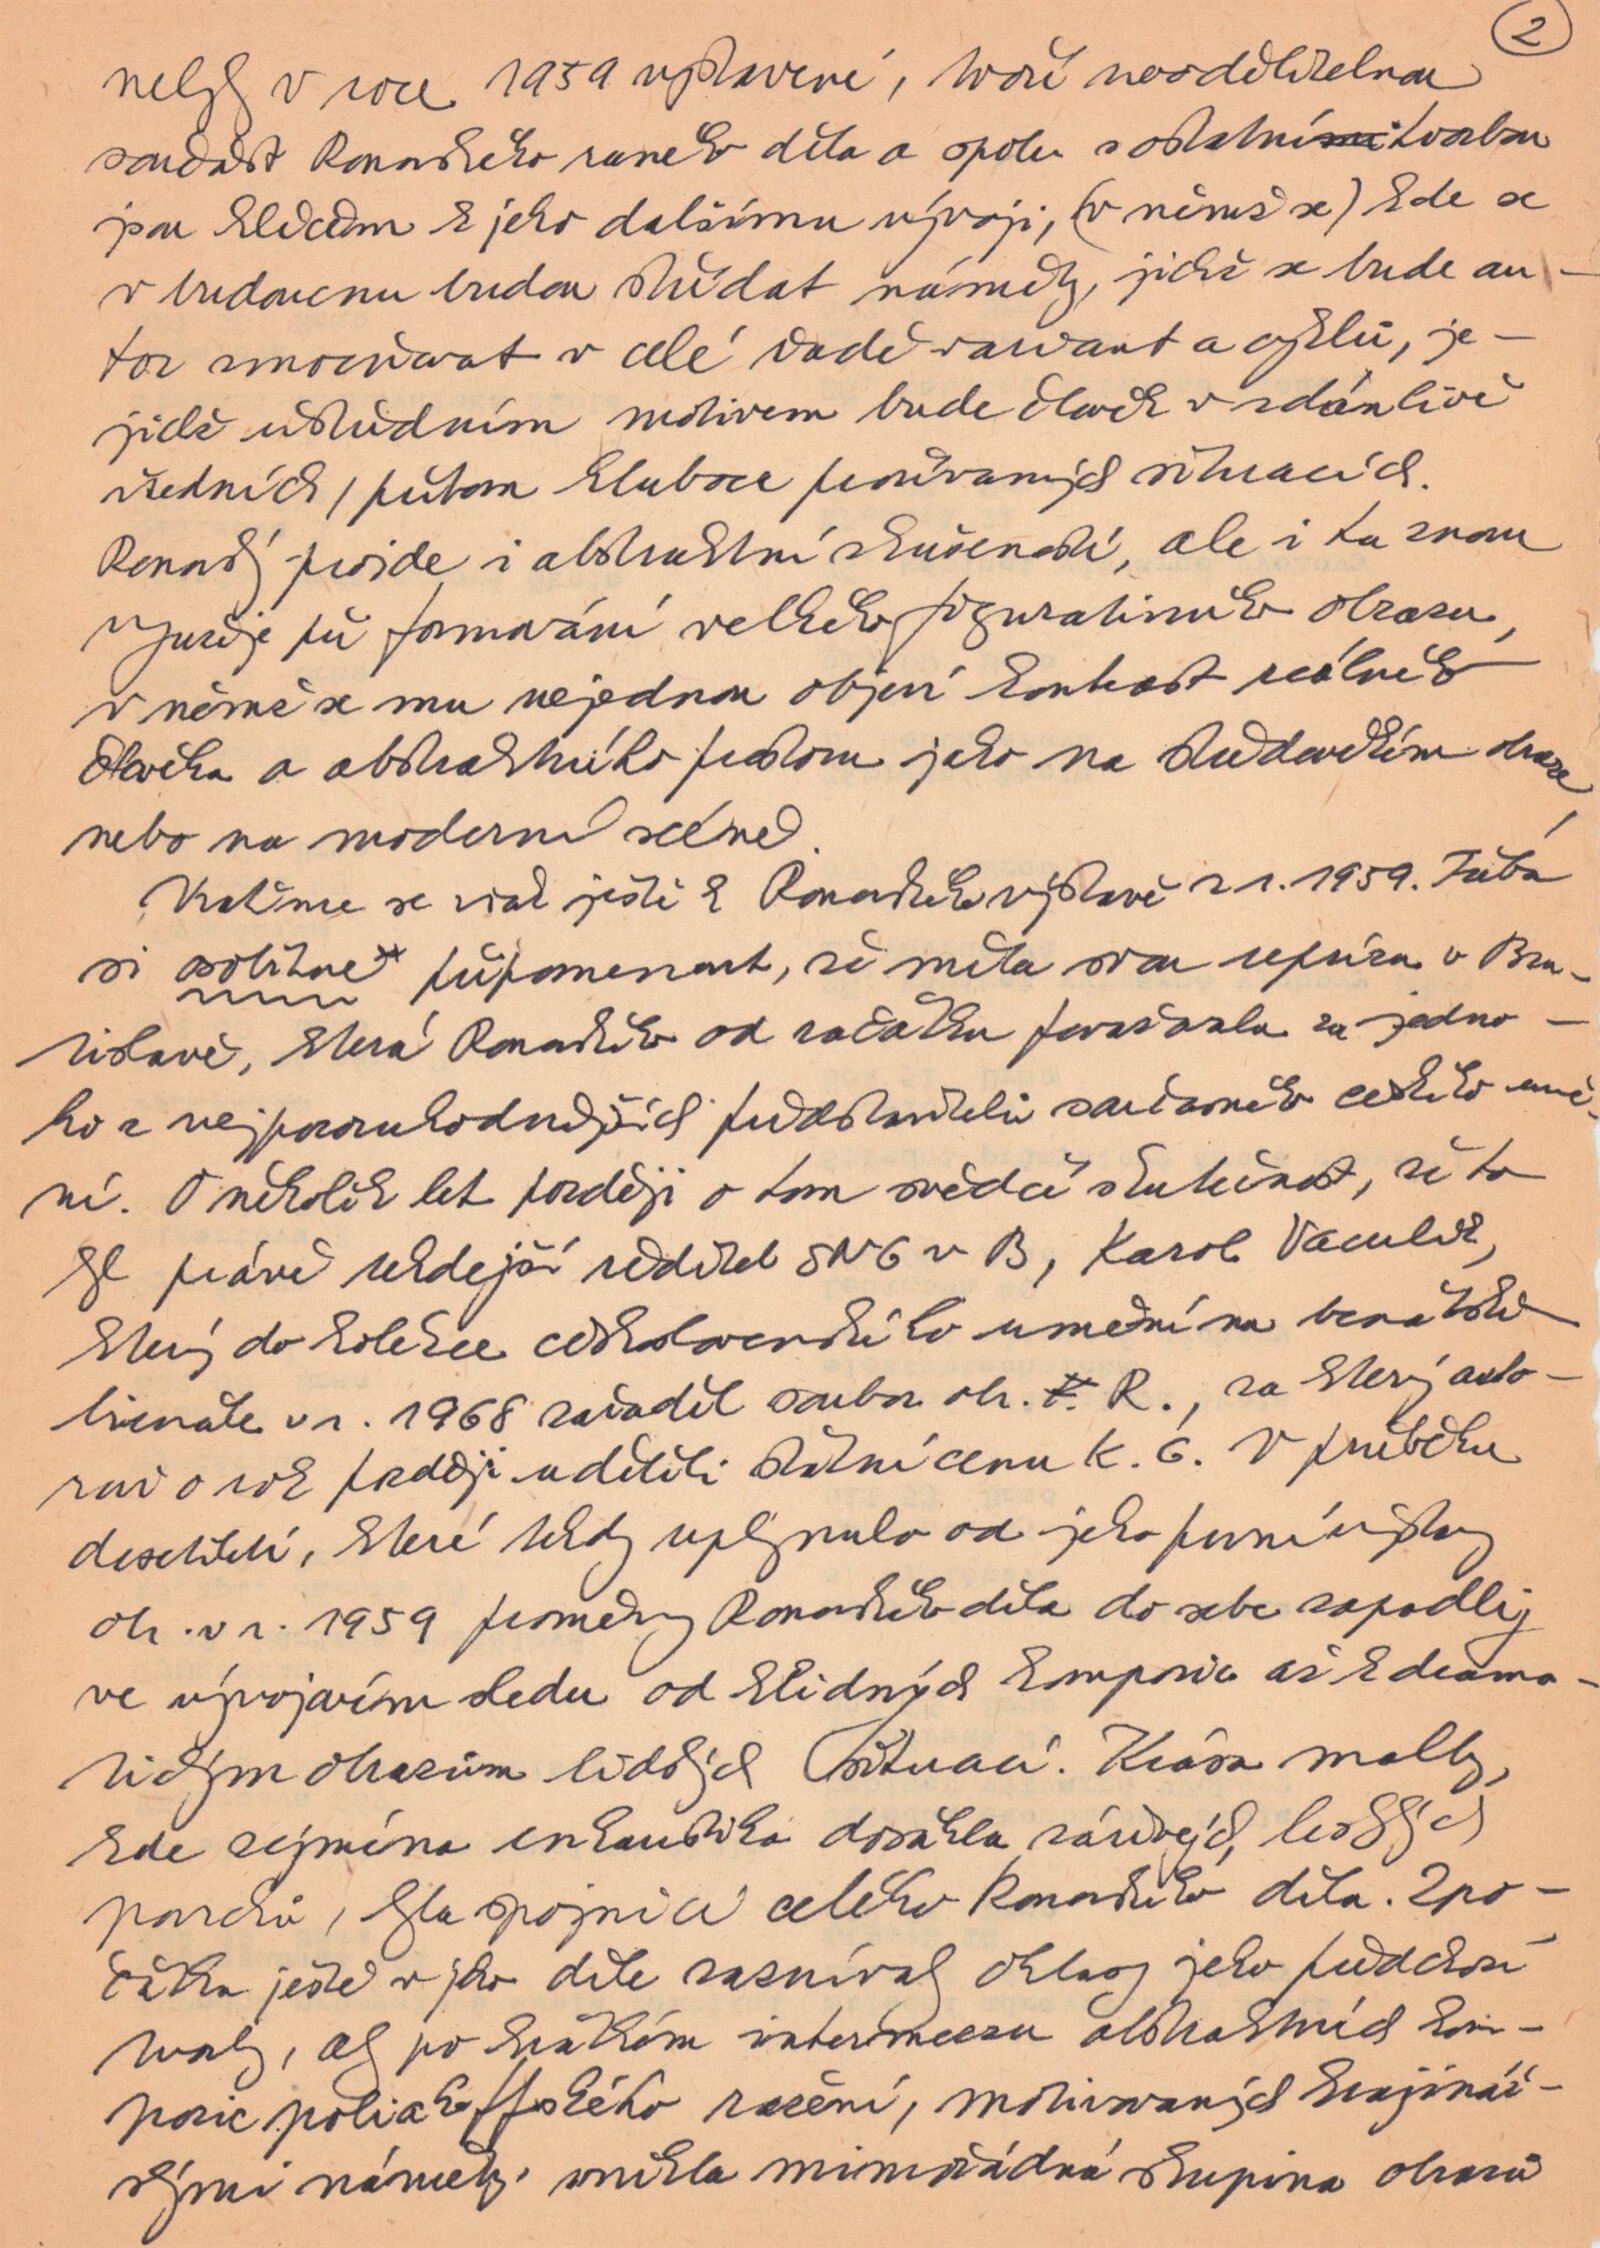 2
nebyly v roce 1959 vystaveny, tvoří neoddělitelnou
součást Ronovského raného díla a spolu s ostatní tvorbou
jsou klíčem k jeho dalšímu vývoji, (v němž se) kde se
v budoucnu budou střídat náměty, jichž se bude au-
tor zmocňovat v celé řadě variant a cyklů, je-
jichž ústředním motivem bude člověk v zdánlivě
všedních, přitom hluboce prožívaných situacích.
Ronovský projde i abstraktní zkušeností, ale i tu znovu
využije při formování velkého figurativního obrazu,
v němž se mu nejednou objeví kontrast reálného
člověka a abstraktního prostoru jako na středověkém obraze
nebo na moderní scéně.
Vraťme se však ještě k Ronovského výstavě z r. 1959. Třeba
si připomenout, že měla svou reprízu v Bra-
tislavě, která Ronovského od začátku považovala za jedno-
ho z nejpozoruhodnějších představitelů současného českého umě-
ní. O několik let později o tom svědčí skutečnost, že to
byl právě tehdejší ředitel SNG v B, Karol Vaculík,
který do kolekce československého umění na benátském
bienále v r. 1968 zařadil soubor obr. F. R., za který auto-
rovi o rok později udělili státní cenu K. G. V průběhu
desetiletí, které tehdy uplynulo od jeho první výstavy
obr. v r. 1959 proměny Ronovského díla do sebe zapadly
ve vývojovém sledu od klidných kompozic až k drama-
tickým obrazům lidských situací. Krása malby,
kde zejména enkaustika dosáhla zářivých, lesklých
povrchů, byla spojnicí celého Ronovského díla. Zpo-
čátku ještě v jeho díle zaznívaly ohlasy jeho předchozí
tvorby, aby po krátkém intermezzu abstraktních kom-
pozic poliakoffského ražení, motivovaných krajinář-
skými náměty, vznikla mimořádná skupina obrazů